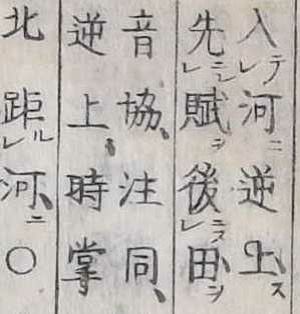 入テレ河ニ逆上、ス
先ニシレ賦ヲ後ニスレ田、ヲ
音協、注同、
逆上、時掌
北距ルレ河、ニ○